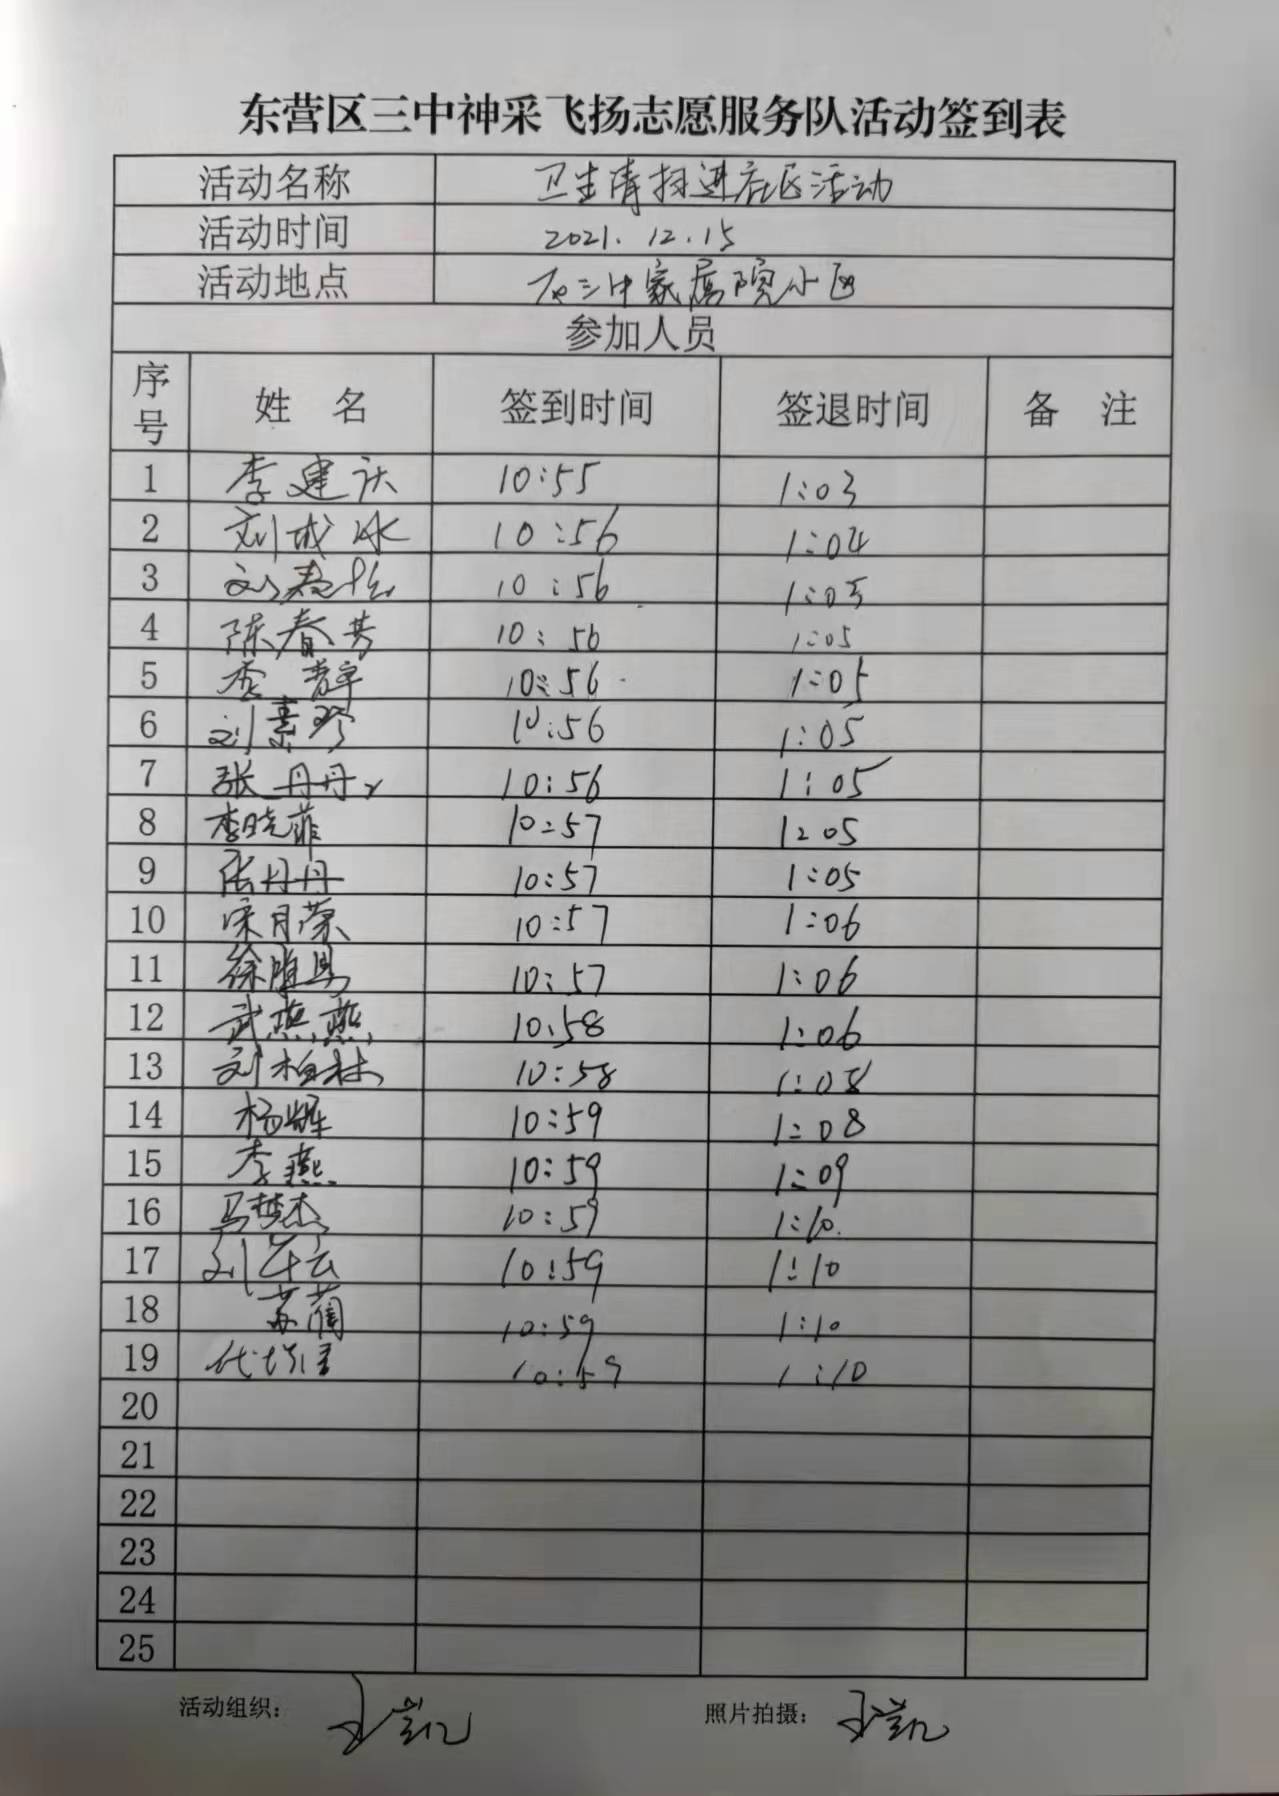 东营区三中神采飞扬志愿服务队活动签到表
活动名称 卫生清扫进社区活动
活动时间 2021.12.15
活动地点 三中家属院小区
参加人员
序号 姓 名 签到时间 签退时间 备 注
1 李建庆 10:55 1:03
2 刘成冰 10:56 1:04
3 刘 10:56 1:05
4 陈春芳 10:56 1:05
5 李静 10:56 1:05
6 刘素珍 10:56 1:05
7 张丹丹 10:56 1:05
8 李晓菲 10:57 1:05
9 张丹丹 10:57 1:05
10 宋月荣 10:57 1:06
11 徐 10:57 1:06
12 武燕燕 10:58 1:06
13 刘柏林 10:58 1:08
14 杨辉 10:59 1:08
15 李燕 10:59 1:09
16 马梦杰 10:59 1:10
17 刘 10:59 1:10
18 苏 10:59 1:10
19 代 10:59 1:10
20
21
22
23
24
25
活动组织: 王凯 照片拍摄: 王凯